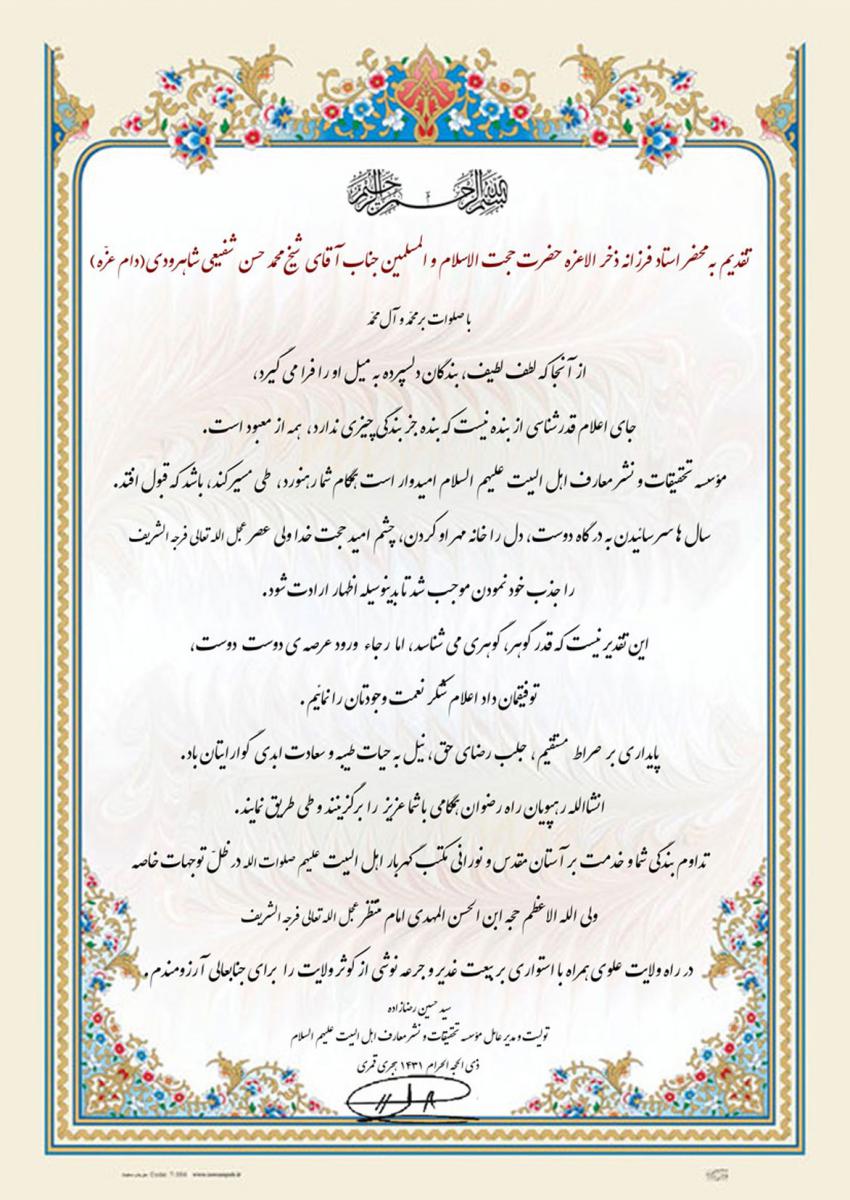 بسم الله الرحمن الرحیم
تقدیم به محضر استاد فرزانه ذخر الاعزه حضرت حجت الاسلام و المسلمین جناب آقای شیخ محمد حسن شفیعی شاهرودی(دام عزّه)
با صلوات بر محمّد و آل محمّد
از آنجا که لطف لطیف، بندگان دلسپرده به میل او را فرا می گیرد،
جای اعلام قدرشناسی از بنده نیست که بنده جز بندگی چیزی ندارد، همه از معبود است.
مؤسسه تحقیقات و نشر معارف اهل البیت علیهم السلام امیدوار است همگام شما رهنورد، طی مسیر کند، باشد که قبول افتد.
سال ها سر سائیدن به درگاه دوست، دل را خانه مهر او کردن، چشم امید حجت خدا ولی عصر عجل الله تعالی فرجه الشریف
را جذب خود نمودن موجب شد تا بدینوسیله اظهار ارادت شود.
این تقدیر نیست که قدر گوهر، گوهری می شناسد، اما رجاء ورود عرصه ی دوست دوست،
توفیقمان داد اعلام شکر نعمت وجودتان را نمائیم.
پایداری بر صراط مستقیم، جلب رضای حق، نیل به حیات طیبه و سعادت ابدی گوارایتان باد.
انشاالله رهپویان راه رضوان همگامی با شما عزیز را برگزینند و طی طریق نمایند.
تداوم بندگی شما و خدمت بر آستان مقدس و نورانی مکتب گهربار اهل البیت علیهم صلوات الله در ظلّ توجهات خاصه
ولی الله الاعظم حجه ابن الحسن المهدی امام منتظر عجل الله تعالی فرجه الشریف
در راه ولایت علوی همراه با استواری بر بیعت غدیر و جرعه نوشی از کوثر ولایت را برای جنابعالی آرزومندم.
سید حسین رضازاده
تولیت و مدیر عامل مؤسسه تحقیقات و نشر معارف اهل البیت علیهم السلام
ذی الحجه الحرام ۱۴۳۱ هجری قمری